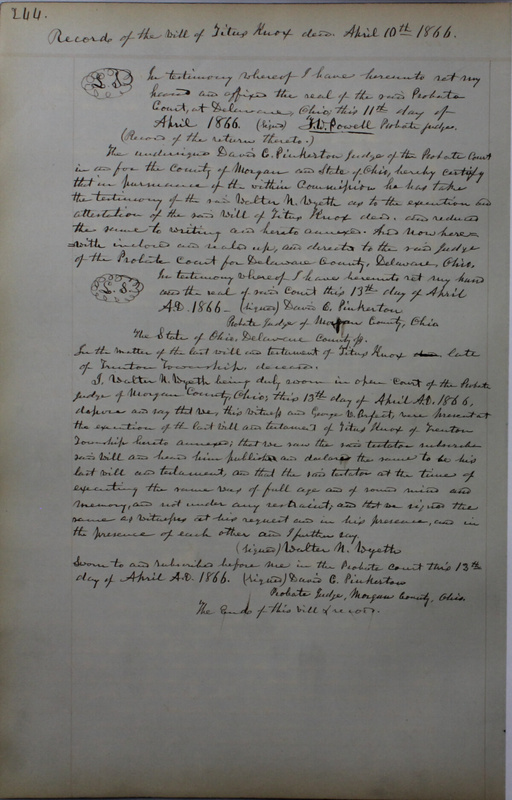 244.
Records of the Will of Titus Knox decd. April 10th 1866.
L.S. In testimony whereof I have hereunto set my
hand and affixed the seal of the said Probate
Court, at Delaware, Ohio this 11th day of
April 1866. (signed) T.W. Powell Probate Judge.
(Record of the return thereto.)
The undersigned David C. Pinkerton Judge of the Probate Court
in and for the County of Morgan and State of Ohio, hereby certify
that in pursuance of the within Commission he has take
the testimony of the said Walter N. Wyeth as to the execution and
attestation of the said Will of Titus Knox decd. and reduced
the same to writing and hereto annexed. And now here
with inclosed and sealed up, and directed to the said Judge
of the Probate Court for Delaware County, Delaware, Ohio.
L.S. In testimony whereof I have hereunto set my hand
and the seal of said Court this 13th day of April
A.D. 1866 - (signed) David C. Pinkerton
Probate Judge of Morgan County, Ohio
The State of Ohio, Delaware County ss.
In the matter of the last will and testament of Titus Knox late
of Trenton Township, deceased.
I, Walter N. Wyeth being duly sworn in open Court of the Probate
Judge of Morgan County, Ohio; this 13th day of April A.D. 1866,
depose and say that we, this witness and George W. were present at
the execution of the last will and testament of Titus Knox of Trenton
Township hereto annexed; that we saw the said testator subscribe
said Will and heard him publish and declare the same to be his
last will and testament, and that the said testator at the time of
executing the same was of full age and of sound mind and
memory, and not under any restraint; and that we signed the
same as witnesses at his request and in his presence, and in
the presence of each other and I further say.
(signed) Walter N. Wyeth
Sworn to and subscribed before me in the Probate Court this 13th
day of April A.D. 1866. (signed) David C. Pinkerton
Probate Judge, Morgan County, Ohio.
The End of this Will & record.